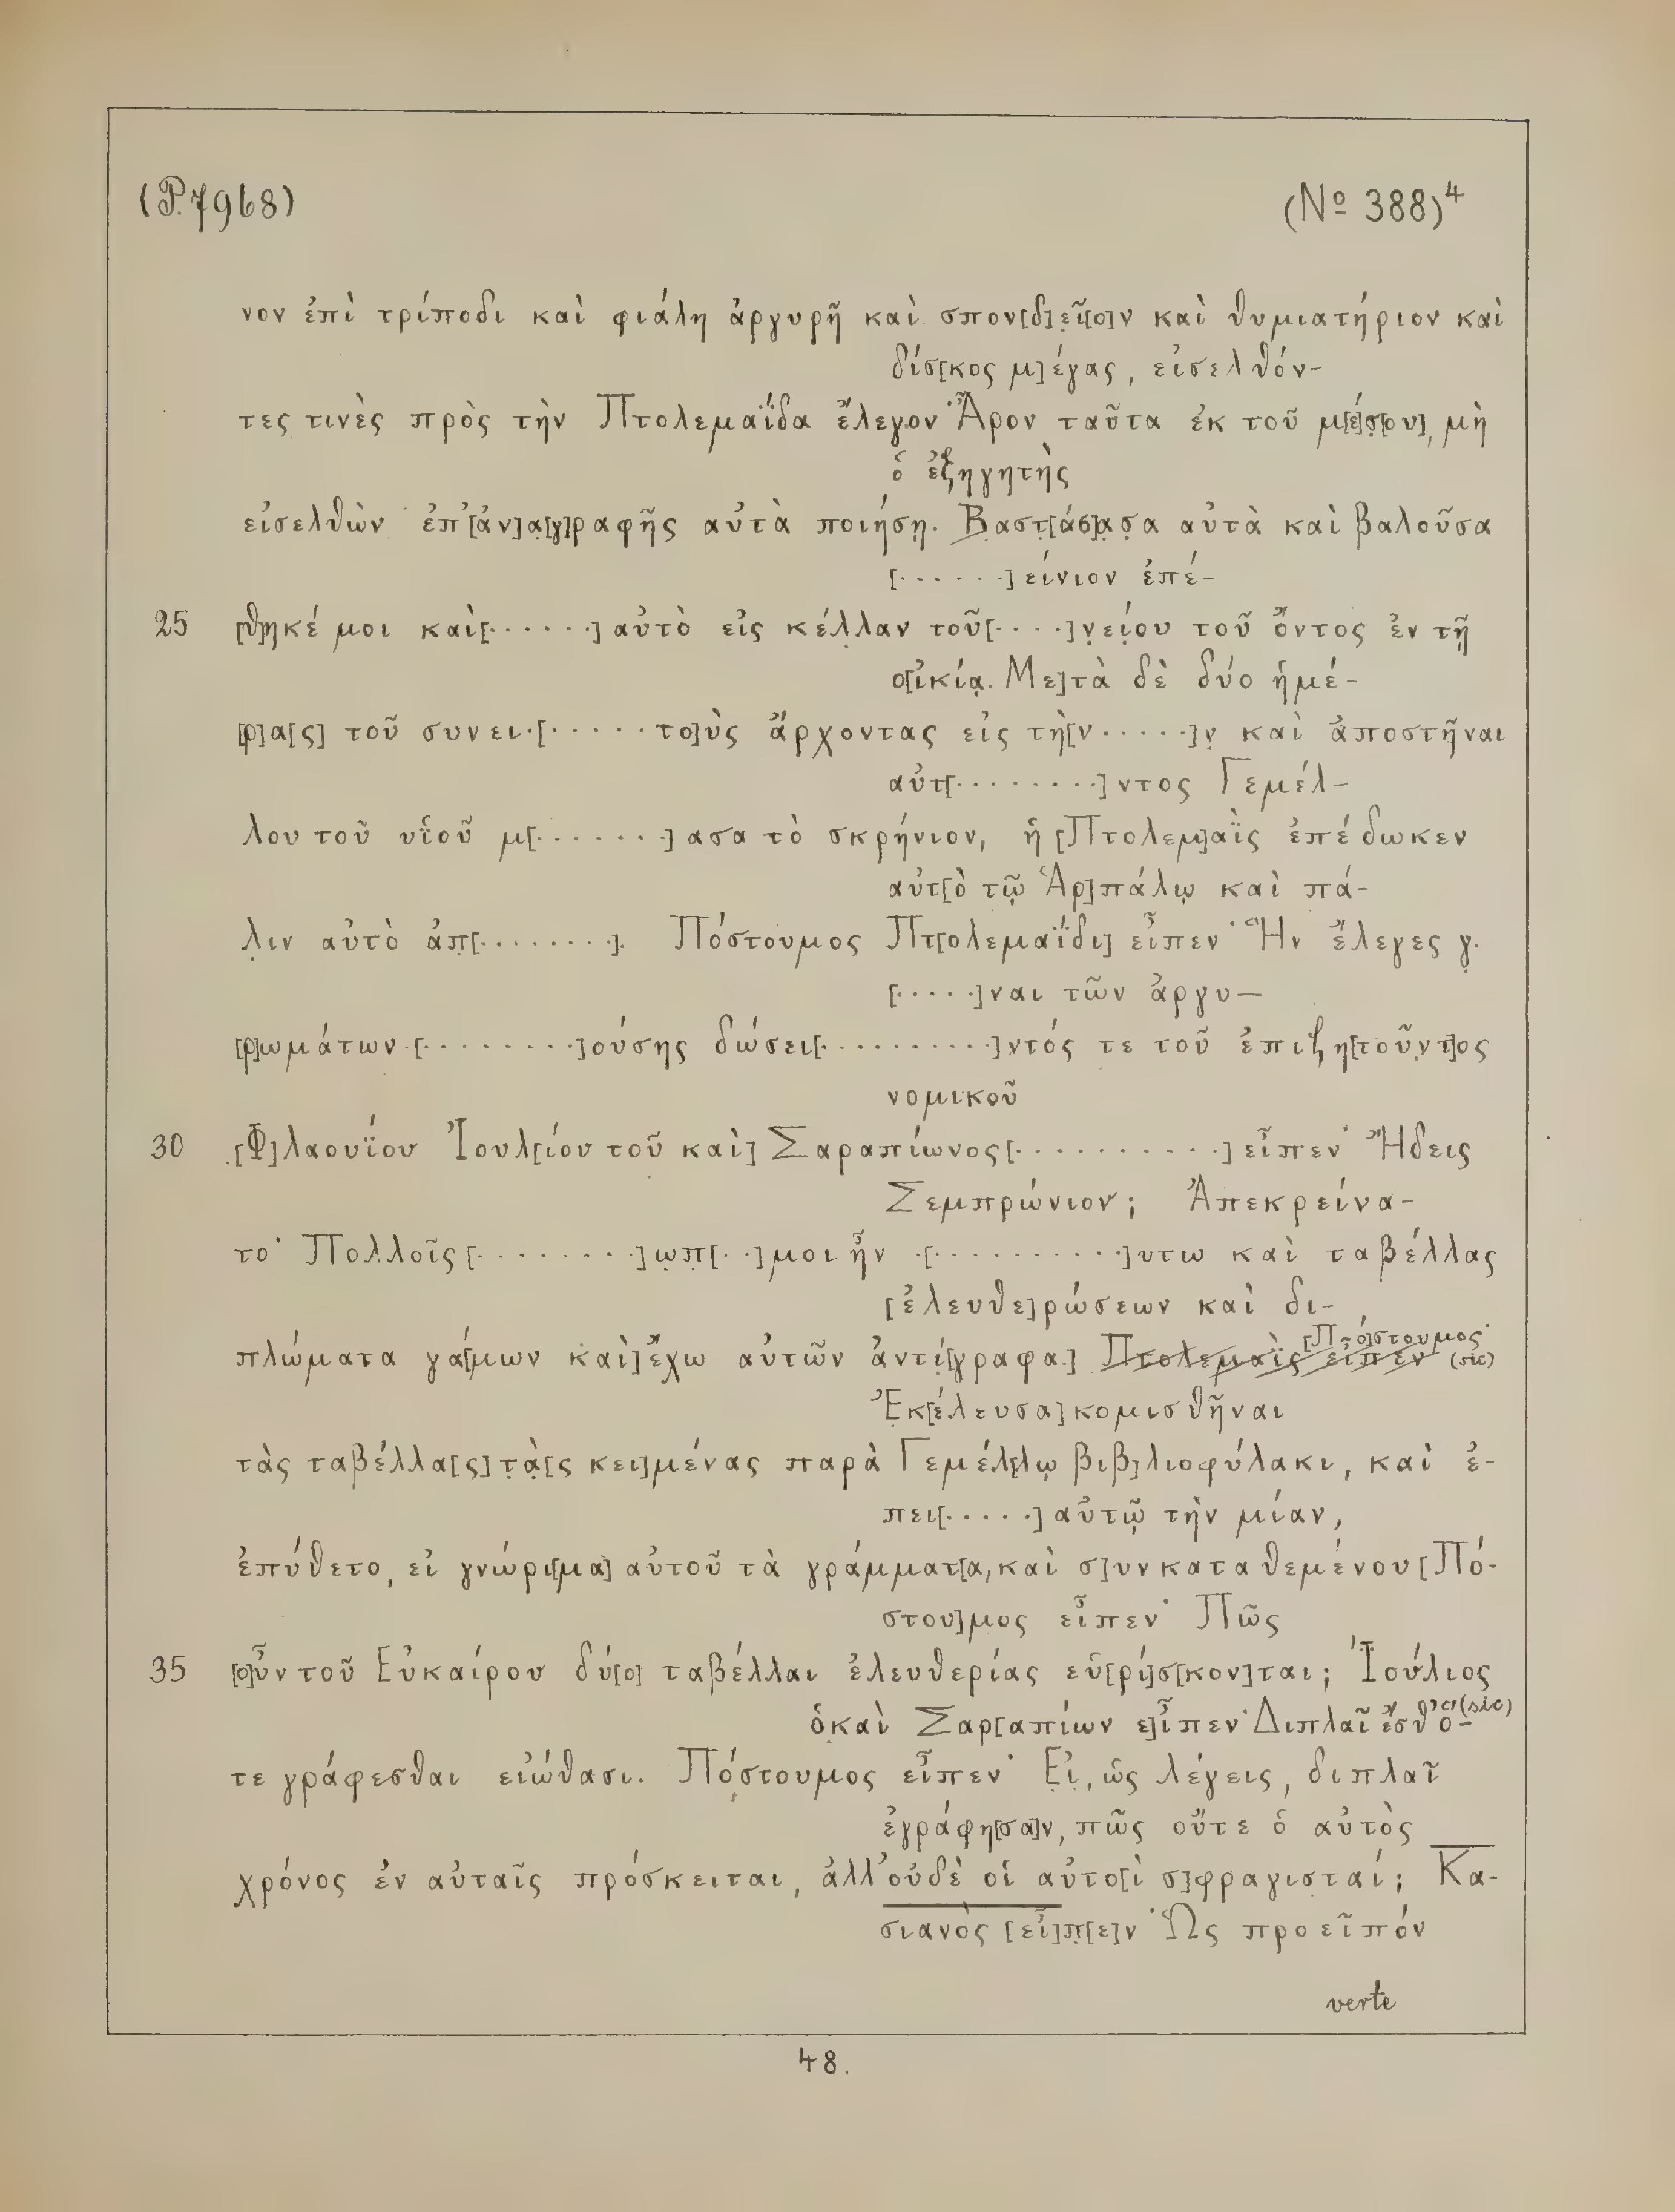 (P. 7968) (No 388)4
νον ἐπὶ τρίποδι καὶ φιάλη ἀργυρῆ καὶ σπον[δ]ε̣ῖ[ο]ν καὶ θυμιατήριον καὶ
δίσ[κος μ]έγας, εἰσελθόν-
τες τινὲς πρὸς τὴν Πτολεμαΐδα ἔλεγον· Ἆρον ταῦτα ἐκ τοῦ μ[έ]σ̣[ου], μὴ
ὁ ἐξηγητὴς
εἰσελθὼν ἐπ' [ἀν]α̣[γ]ραφῆς αὐτὰ ποιήσῃ. Β̣αστ̣[άσ]α̣σ̣α αὐτὰ καὶ βαλοῦσα
[· · · · · ·] είνιον ἐπέ-
25 [θ]ηκέ μοι καὶ[· · · · · · ·] αὐτὸ εἰς κέλλ̣αν τοῦ[· · · ·]ν̣ε̣ί̣ου τοῦ ὄντος ἐν τῇ
ο[ἰκίᾳ. Με]τὰ δὲ δύο ἡμέ-
[ρ]α[ς] τοῦ συνει·[· · · · · · το]ὺς ἄρχοντας εἰς τὴ[ν · · · · ·]ν̣ καὶ ἀποστῆναι
αὐτ[· · · · · · · ·] ντος Γεμέλ-
λου τοῦ υἱ̈οῦ μ[· · · · · · · ·] ασα τὸ σκρήνιον, ἡ [Πτολεμ]αῒς ἐπέδωκεν
αὐτ[ὸ τῷ Ἁρ]πάλῳ καὶ πά-
λ̣ιν αὐτὸ ἀπ̣[· · · · · · · ·]. Πόστουμος Πτ[ολεμαΐδι] εἶπεν· Ἣν ἔλεγες γ̣·
[· · · · ·]ναι τῶν ἀργυ-
[ρ]ωμάτων·[· · · · · · · · ·]ούσης δώσει[· · · · · · · · · · ·]ντός τε τοῦ ἐπιζη[τοῦντ]ος
νομικοῦ
30 [Φ]λαουΐου Ἰουλ[ίου τοῦ καὶ] Σαραπίωνος[· · · · · · · · · · ·] εἶπεν· Ἤδεις
Σεμπρώνιον; Ἀπεκρείνα-
το· Πολλοῖς [· · · · · · · · ·] ῳπ̣[· ·] μοι ἦν ·[· · · · · · · · · · ·]υτω καὶ ταβέλλας
[ἐλευθε]ρώσεων καὶ δι-
[Πό]στουμος·
πλώματα γά[μων καὶ] ἔχω αὐτῶν ἀντί[γραφα.] Πτολεμαὶς εἶπεν (sic)
Ἐ̣κ[έλευσα] κομισθῆναι
τὰς ταβέλλα[ς] τ̣ὰ̣[ς κει]μένας παρὰ Γεμέλ[λῳ βιβ]λιοφύλακι, καὶ ἐ-
πει[· · · · ·] αὐτῷ τὴν μίαν,
ἐπύθετο, εἰ γνώρι[μα] αὐτοῦ τὰ γράμματ[α, καὶ σ]υνκαταθεμένου [Πό-
στου]μος εἶπεν· Πῶς
35 [ο]ὖν τοῦ Εὐκαίρου δύ[ο] ταβέλλαι ἐλευθερίας εὑ[ρί]σ[κον]ται; Ἰούλιος
ὁ καὶ Σαρ[απίων ε]ἶπεν· Διπλαῖ ἔσθ' ὅ- (sic)
τε γράφεσθαι εἰώθασι. Πό̣στουμος εἶπεν· Ε̣ἰ̣, ὡς λέγεις, διπλαῖ
ἐγράφη[σα]ν, πῶς οὔτε ὁ αὐτὸς
χρόνος ἐν αὐταῖς πρόσκειται, ἀλλ' οὐδὲ οἱ αὐτο[ὶ σ]φραγισταί; Κα-
σιανὸς [εἶ]π̣[ε]ν· Ὡς προεῖπόν
verte
48.